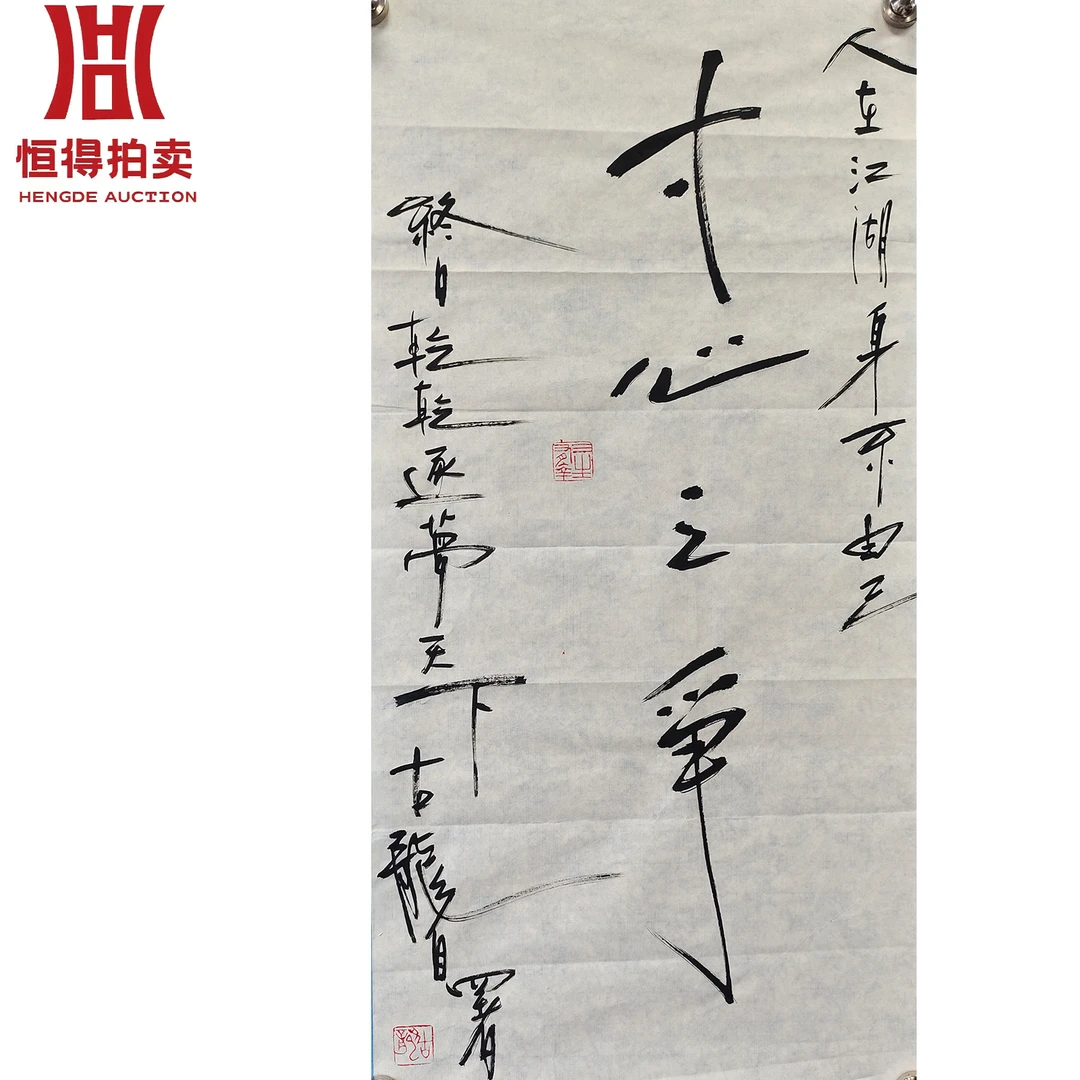 恒得拍卖
HENGDE AUCTION
人在江湖身不由己
寸心之爭
終日乾乾逐夢天下古龍自署